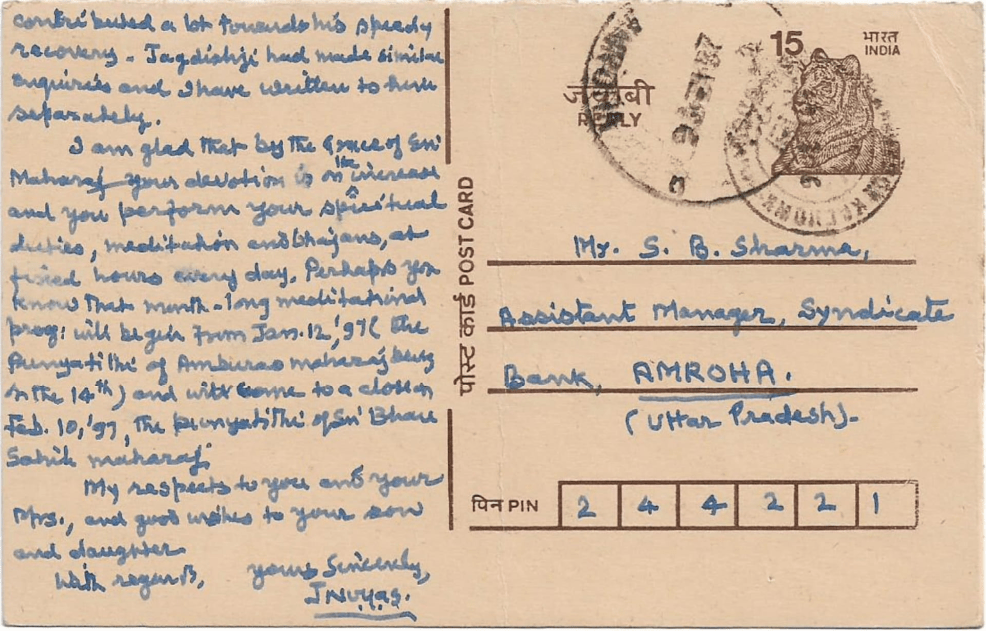 contributed a lot towards his speedy
recovery - Jagdishji had made similar
enquiries and I have written to him
separately.
I am glad that by the Grace of Sri
Maharaj your devotion is on the increase
and you perform your spiritual
duties, meditation and bhajans, at
fixed hours every day. Perhaps you
know that month-long meditational
prog: will begin from Jan. 12, '97 ( the
Punyatithi of Amburao maharaj being
on the 14th ) and will come to a close on
Feb. 10, '97, the punyatithi of Sri Bhau
Sahib maharaj.
My respects to you and your
Mrs., and good wishes to your son
and daughter.
With regards,
yours Sincerely,
पोस्ट कार्ड POST CARD
15
भारत
INDIA
जवाबी
REPLY
Mr. S. B. Sharma,
Assistant Manager, Syndicate
Bank, AMROHA.
(Uttar Pradesh)-
पिन PIN 2 4 4 2 2 1